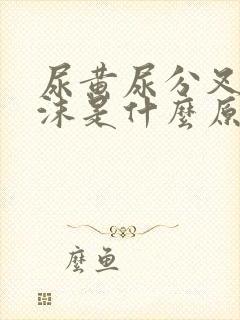 尿黄尿分叉
沫是什麼原
麼鱼